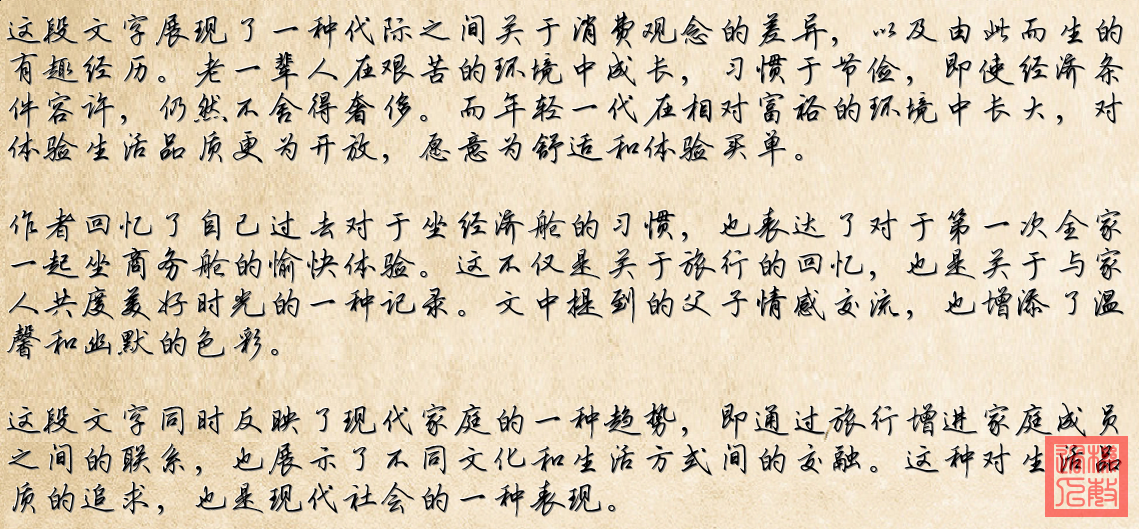 这段文字展现了一种代际之间关于消费观念的差异，以及由此而生的
有趣经历。老一辈人在艰苦的环境中成长，习惯于节俭，即使经济条
件容许，仍然不舍得奢侈。而年轻一代在相对富裕的环境中长大，对
体验生活品质更为开放，愿意为舒适和体验买单。
作者回忆了自己过去对于坐经济舱的习惯，也表达了对于第一次全家
一起坐商务舱的愉快体验。这不仅是关于旅行的回忆，也是关于与家
人共度美好时光的一种记录。文中提到的父子情感交流，也增添了温
馨和幽默的色彩。
这段文字同时反映了现代家庭的一种趋势，即通过旅行增进家庭成员
之间的联系，也展示了不同文化和生活方式间的交融。这种对生活品
质的追求，也是现代社会的一种表现。